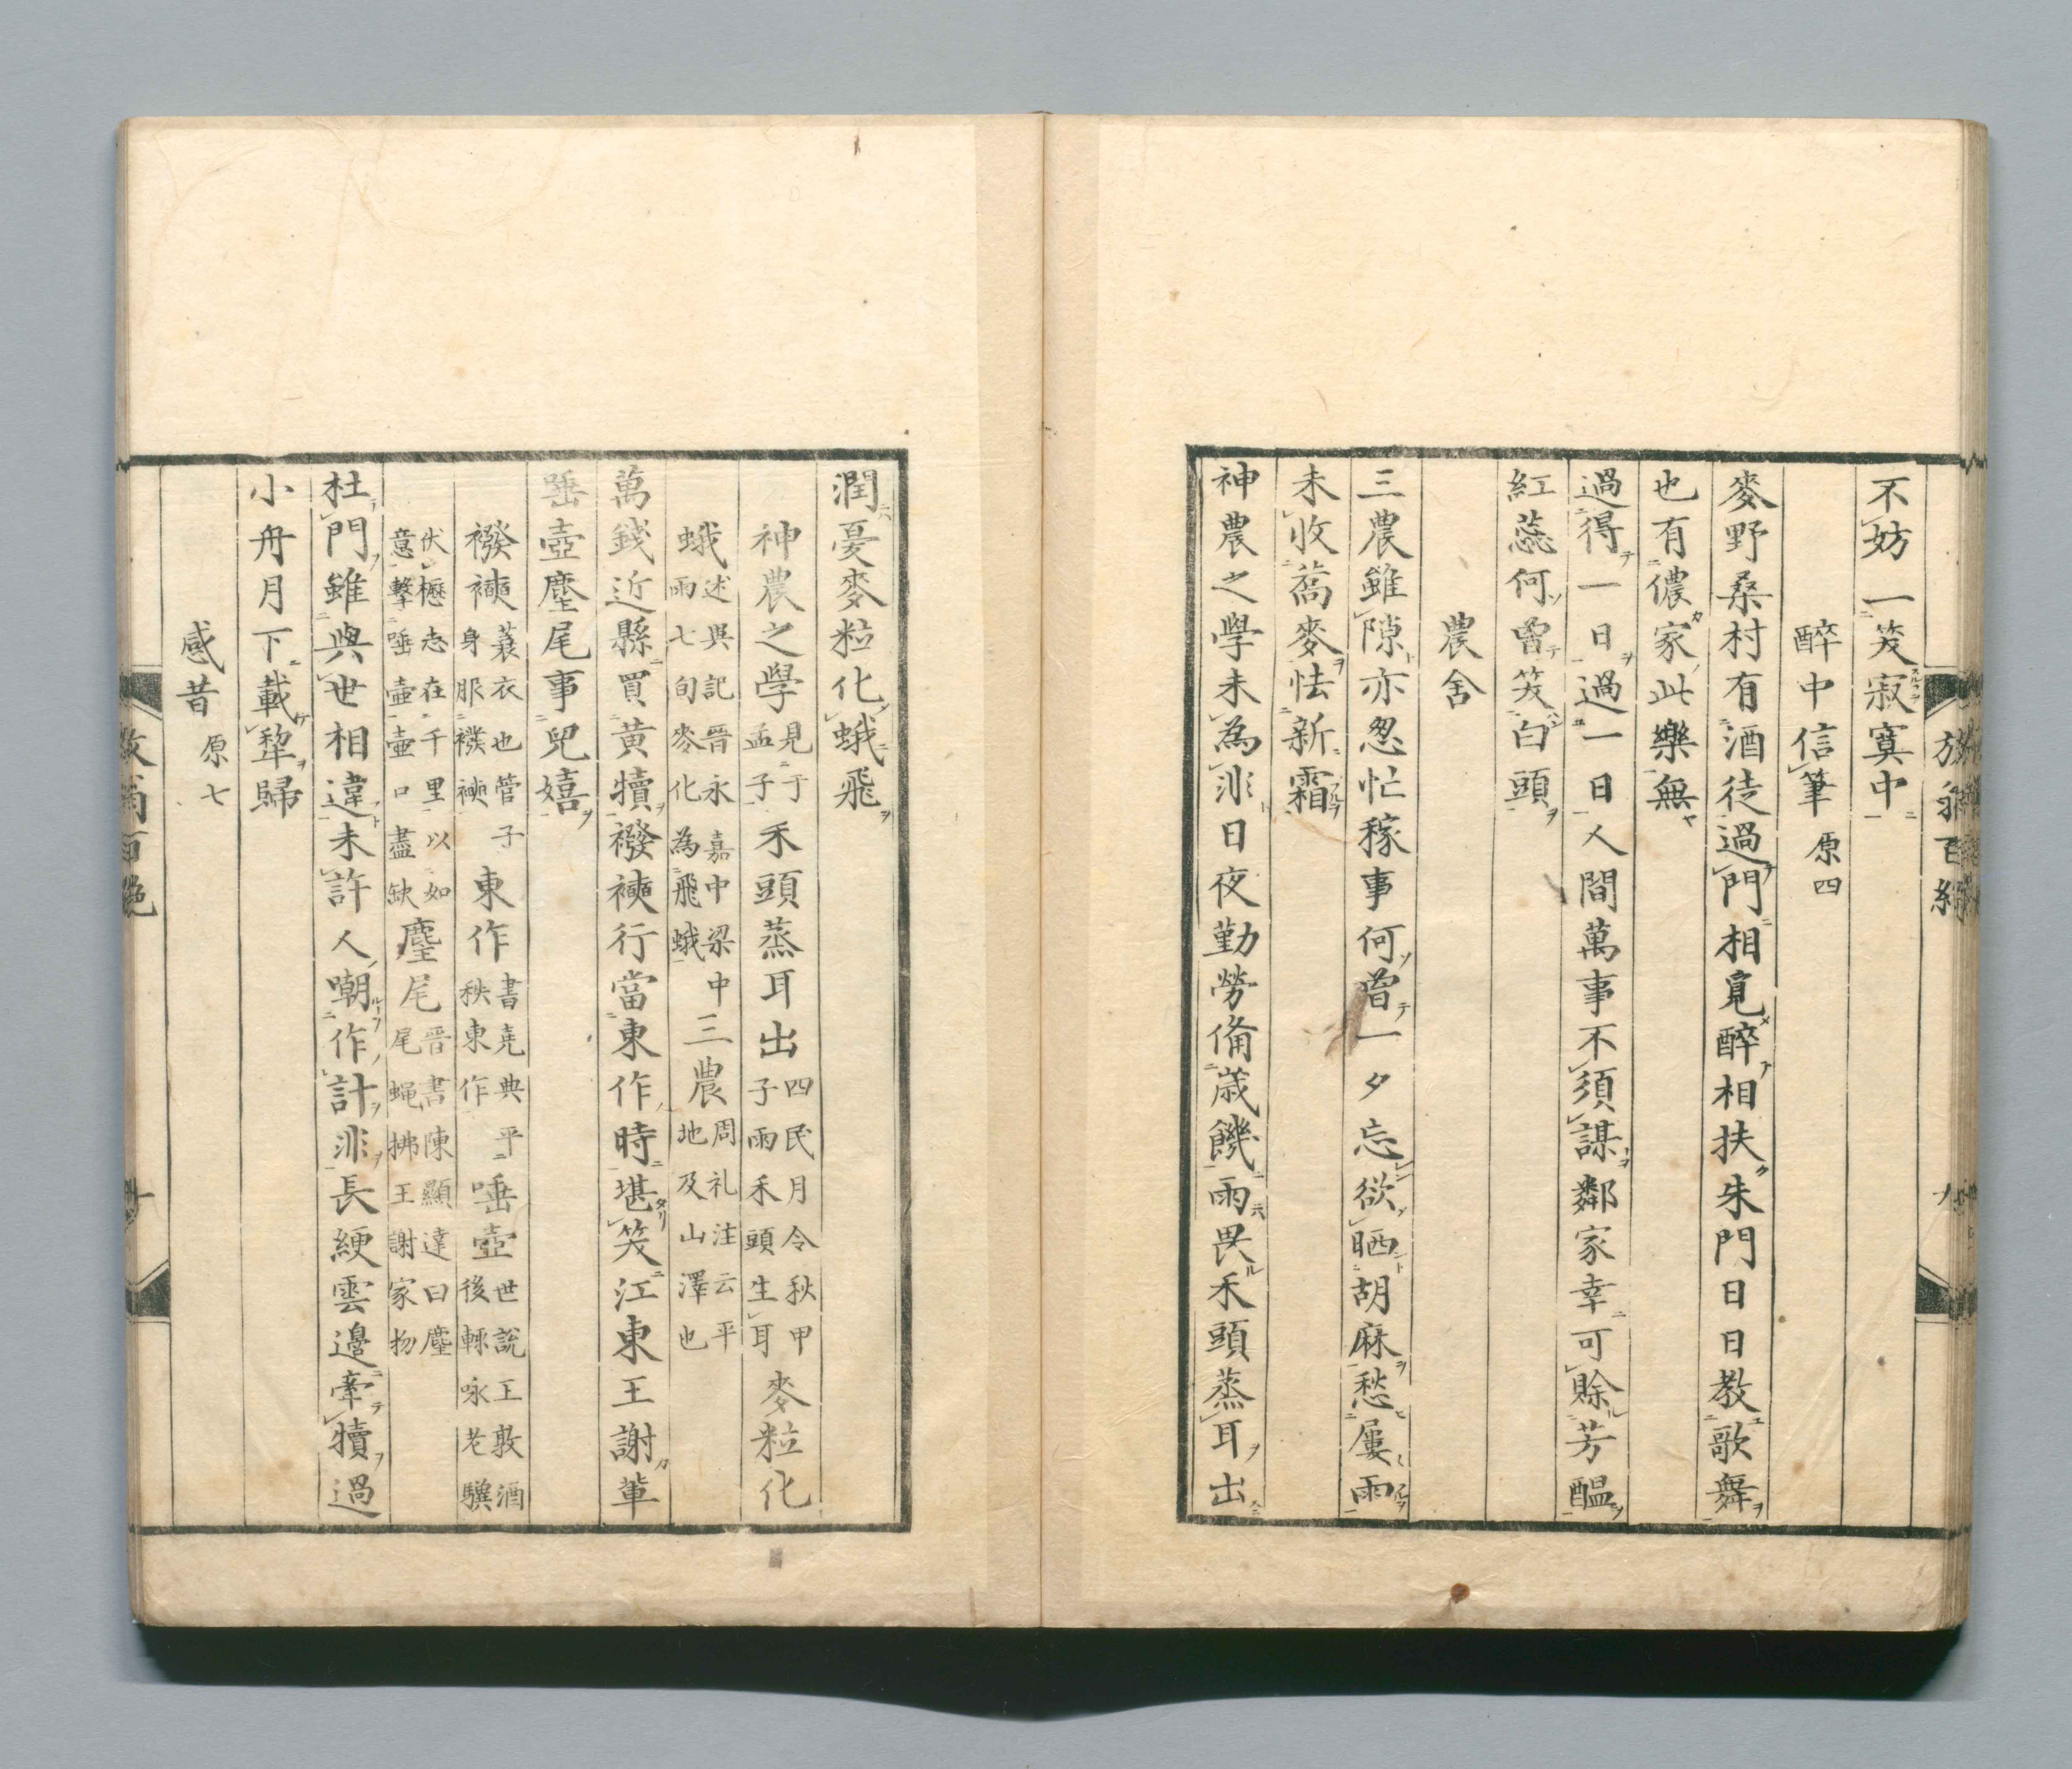 不妨一笑寂寞中
醉中信筆 原四
麥野桑村有酒徒過門相覓醉相扶朱門日日教歌舞
也有儂家此樂無
過得一日過一日人間萬事不須謀鄰家幸可賒芳醞
紅蕊何曾笑白頭
農舍
三農雖隙亦怱忙稼事何曾一夕忘欲晒胡麻愁屢雨
未收蕎麥怯新霜
神農之學未為非日夜勤勞備歲饑雨畏禾頭蒸耳出
潤憂麥粒化蛾飛
神農之學 見于
孟子 禾頭蒸耳出 四民月令秋甲
子雨禾頭生耳 麥粒化
蛾 述異記晉永嘉中梁中
雨七旬麥化為飛蛾 三農 周礼注云平
地及山澤也
萬錢近縣買黃犢襏襫行當東作時堪笑江東王謝輩
唾壺麈尾事兒嬉
襏襫 蓑衣也管子
身服襏襫 東作 書堯典平
秩東作 唾壺 世說王敦酒
後輒咏老驥
伏櫪志在千里以如
意擊唾壺壺口盡缺 麈尾 晉書陳顯達曰麈
尾蝇拂王謝家物
杜門雖與世相違未許人嘲作計非長綆雲邊牽犢過
小舟月下載犂歸
感昔 原七